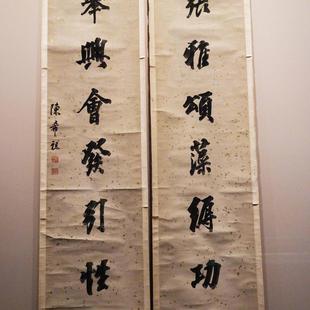 張雅頌藻縟功
舉興會發引性
陳希祖